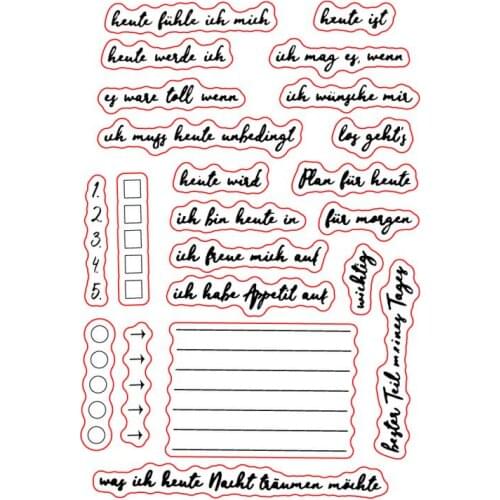 heute fühle ich mich
heute ist
heute werde ich
ich mag es, wenn
es wäre toll wenn
ich wünsche mir
ich muss heute unbedingt
los geht's
heute wird
Plan für heute
1.
2.
3.
4.
5.
ich bin heute in
für morgen
ich freue mich auf
wichtig
ich habe Appetit auf
bester Teil meines Tages
was ich heute Nacht träumen möchte